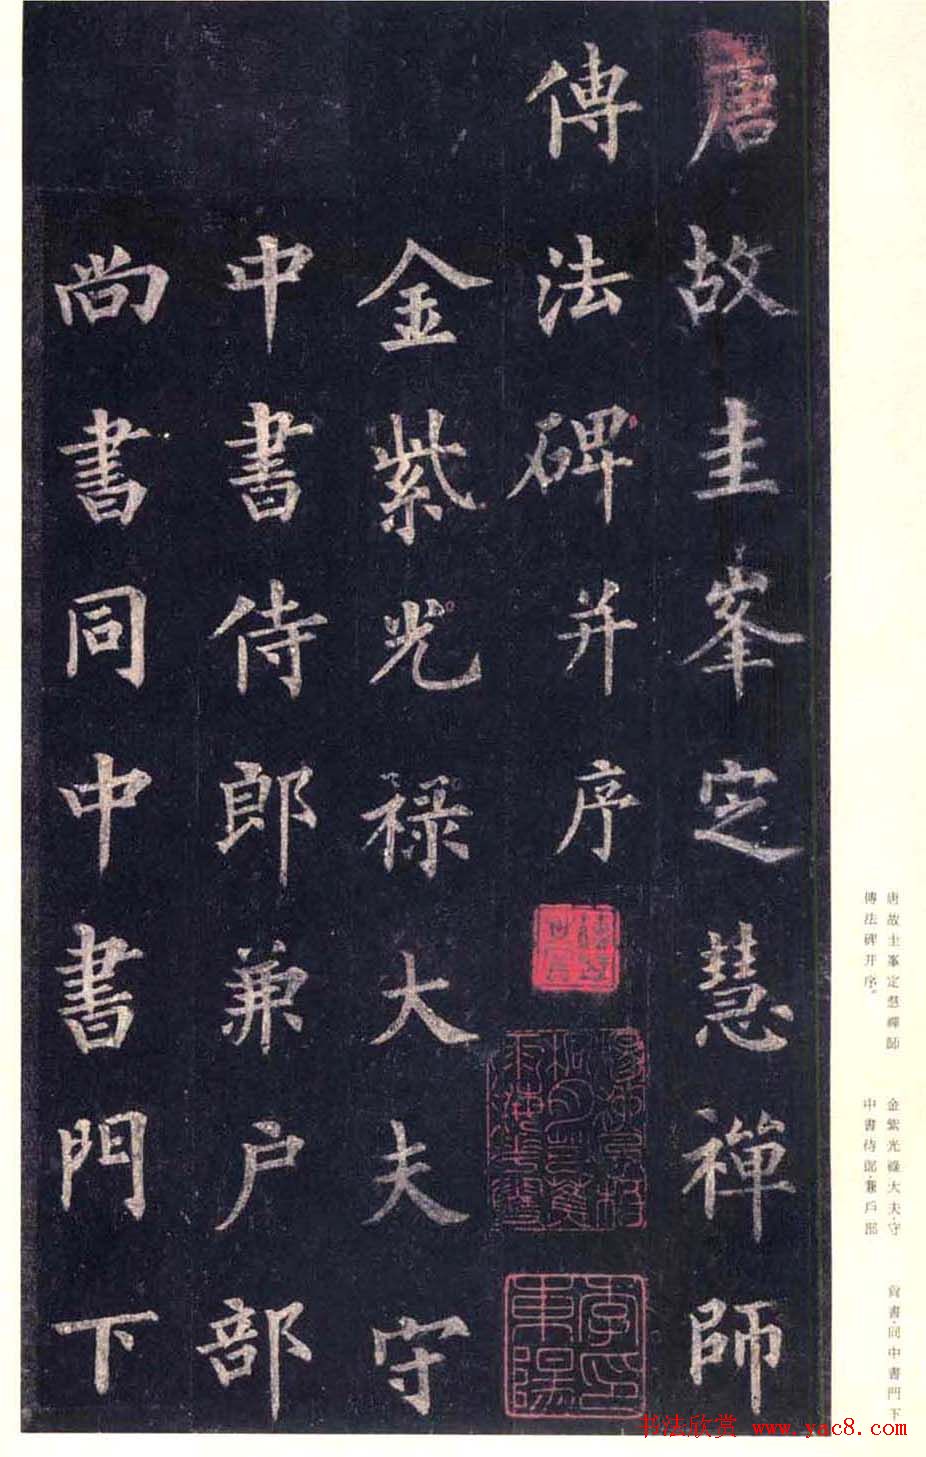 唐故圭峯定慧禪師
傳法碑并序
金紫光禄大夫守
中書侍郎兼户部
尚書同中書門下
唐故圭峯定慧禪師
傳法碑并序。
金紫光祿大夫·守
中書侍郎·兼戶部
尙書·同中書門下
书法欣赏 www.yac8.com